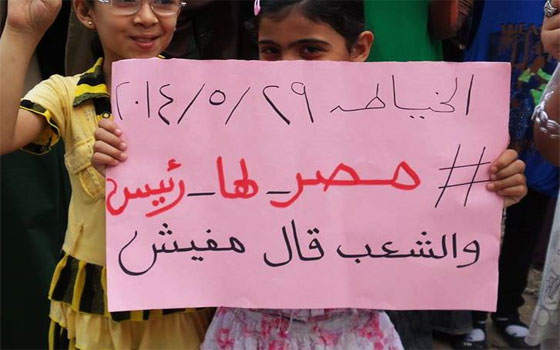 الخياطه ٢٠١٤/٥/٢٩
#مصر_لها_رئيس
والشعب قال مفيش